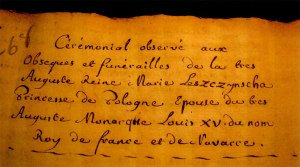 Cérémonial observé aux
Obseques et funérailles de la tres
Auguste Reine Marie Leszczynscha
Princesse de Pologne Epouse du tres
Auguste Monarque Louis XV. du nom
Roy de france et de Navarre.